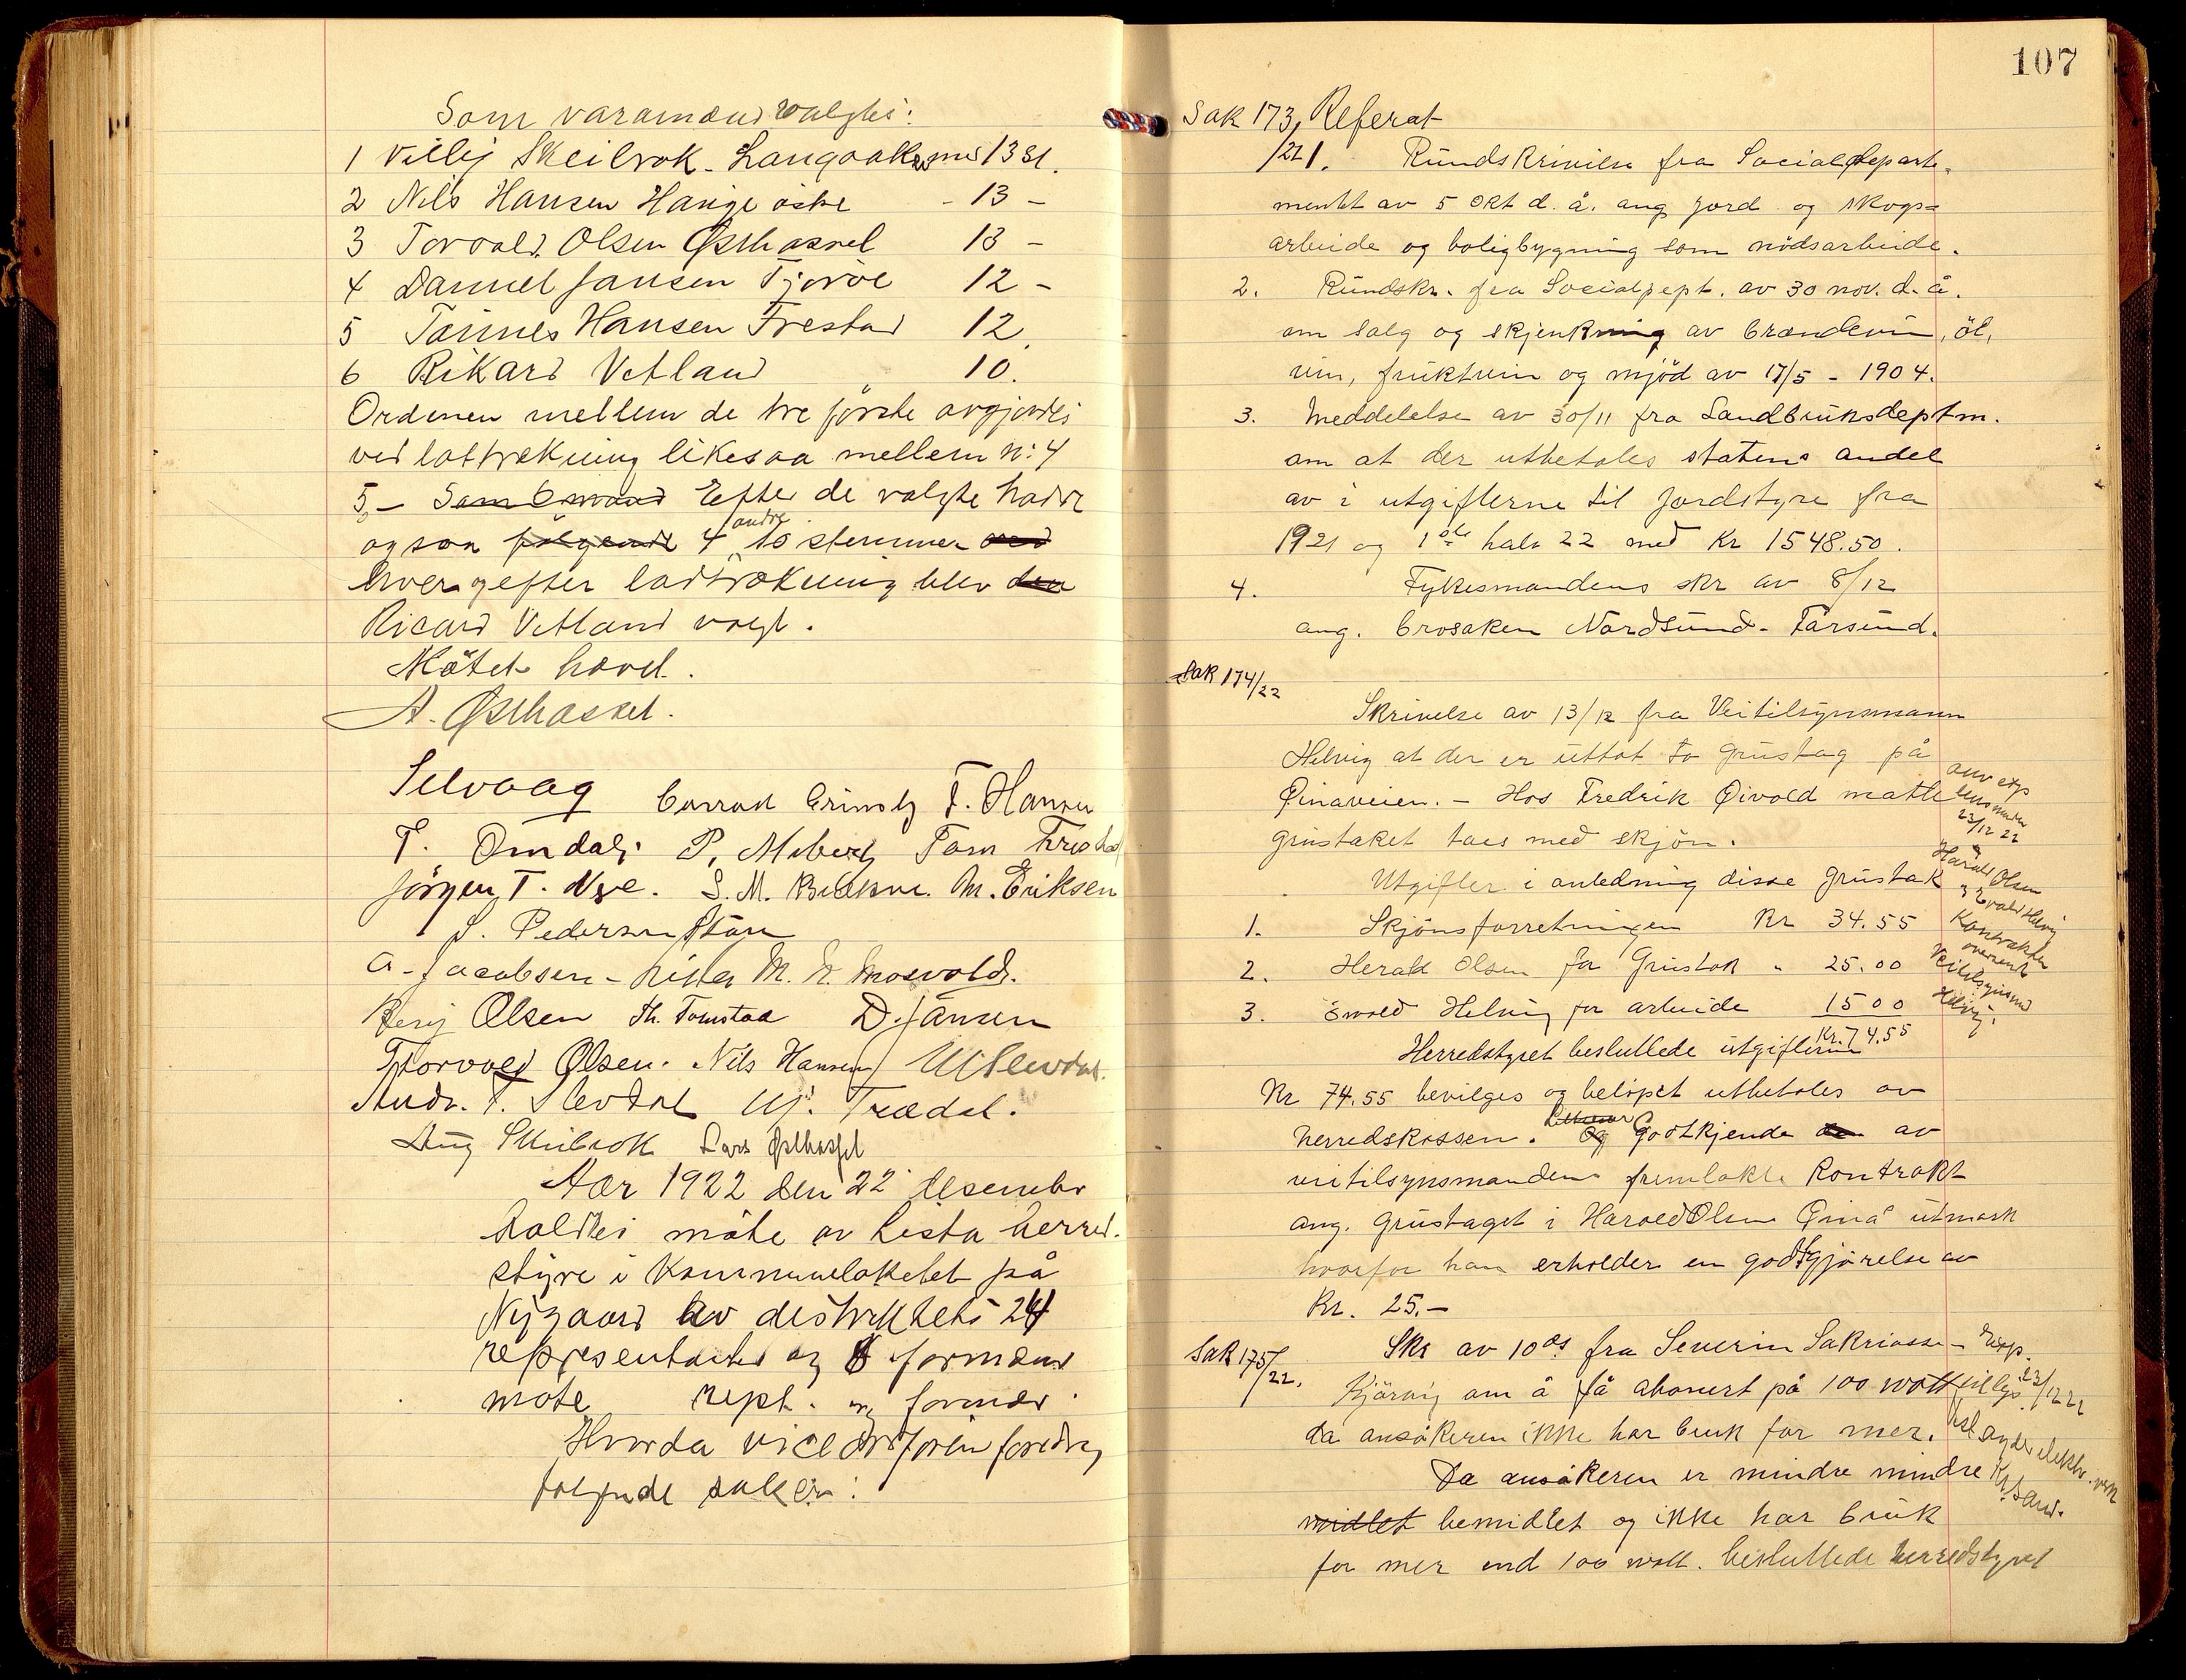 Som varamænd valgtes:
1 Villy Skeibrok - Langaaker med 13 st.
2 Nils Hansen Hauge østre - 13 -
3 Torvald Olsen Østhassel 13 -
4 Daniel Jansen Tjørve 12 -
5 Tønnes Hansen Frestad 12.
6 Rikard Vetland 10.
Ordenen mellem de tre første avgjordes
ved lottrækning likesaa mellem N: 4
5 - Efter de valgte hadde
ogsaa følgende 4 andre 10 stemmer
hver og efter lodtrækning blev den
Ricard Vetland valgt.
Møtet hævet.
A. Østhassel.
Selvaag Conrad Grimsby T. Hansen
T. Omdal P. Meberg Tom Frestad
Jørgen T. Nye. S. M. M. Eriksen
S. Pedersen Stave
A. Jacobsen - Lista M. N. Mosvold.
Berij Olsen Th. Tomstad D. Jansen
Torvald Olsen. Nils Hansen
Andr. T. Slevdal Trædal.
Aug Skeibrok Lars Østhassel
Aar 1922 den 22 desember
holdtes møte av Lista herred-
styre i Kommunelokalet på
Nygaard av distriktets 24
representanter og formænd
møte rept. og formænd.
Hvorda viceordføren foredrog
følgende saker:
107
Sak 173/22 Referat
1. Rundskrivelse fra Socialdeparte-
mentet av 5 Okt d. å. ang jord og skogs-
arbeide og boligbygning som nödsarbeide.
2. Rundskr. fra Socialdept. av 30 nov. d. å.
om salg og skjenkning av brændevin, öl,
vin, fruktvin og mjöd av 17/5 - 1904.
3. Meddelelse av 30/11 fra Landbruksdeptm.
om at der utbetales statens andel
av i utgifterne til jordstyre fra
1921 og 1ste halv 22 med Kr 1548.50.
4. Fylkesmandens skr av 8/12
ang. brosaken Nordsund - Farsund.
Sak 174/22
Skrivelse av 13/12 fra Veitilsynsmann
Helvig at der er uttat to grustag på
Qinaveien. - Hos Fredrik Øivold matte
grustaket taes med skjön.
Utgifter i anledning disse grustak
1. Skjönsforretningen Kr 34.55
2. Harald Olsen for Grustak " 25.00
3. Evald Helvig for arbeide 15 00
Kr. 74.55
Herredstyret besluttede utgifterne
Kr 74.55 bevilges og belöpet utbetales av
herredskassen. Og godtkjende den av
veitilsynsmanden fremlakte Kontrakt
ang. grustaget i Harald Olsen Qinå utmark
hvorfor han erholder en godtgjörelse av
Kr. 25.-
23/12 22
Harald Olsen
og Evald Helvig
Kontrakten
oversendt
Veitilsynsmd
Helvig.
Sak 175/22.
Skr av 10 ds fra Severin Sakriassen -
Kjörvig om å få abonert på 100 watt til lys
da ansökeren ikke har bruk for mer.
Da ansökeren er mindre mindre
midlet bemidlet og ikke har bruk
for mer end 100 watt. besluttede herredstyret
Exp.
23/12 22
Vest Agder elektr. verk
Kr.sand.